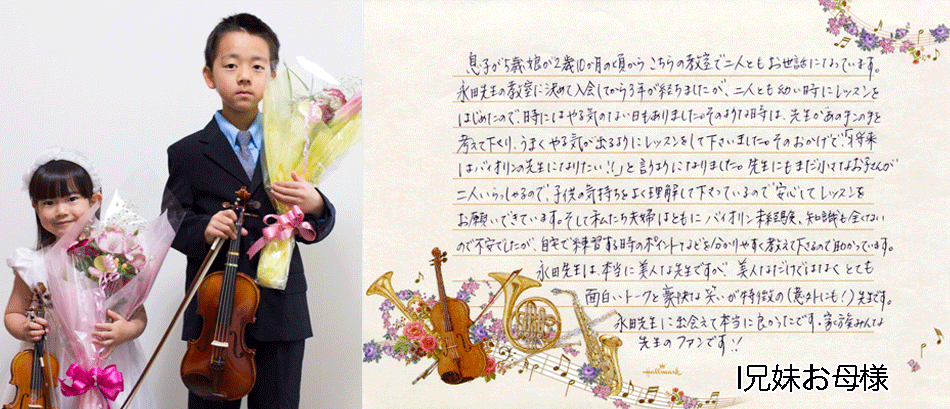 息子が5歳娘が2歳10か月の頃からこちらの教室で二人ともお世話になっています。
永田先生の教室に決めて入会してから3年が経ちましたが、二人とも幼い時にレッスンを
はじめたので、時にはやる気のない日もありました。そのような時は、先生があの手この手を
考えて下さり、うまくやる気が出るようにレッスンをして下さいました。そのおかげで、「将来
はバイオリンの先生になりたい！」と言うようになりました。先生にもまだ小さなお子さんが
二人いらっしゃるので、子供の気持ちをよく理解して下さっているので安心してレッスンを
お願いできています。そして私たち夫婦はともにバイオリン未経験、知識も全くない
ので不安でしたが、自宅で練習する時のポイントなどを分かりやすく教えて下さるので助かっています。
永田先生は、本当に美人な先生ですが、美人なだけではなくとても
面白いトークと豪快な笑いが特徴の(意外にも！)先生です。
永田先生に出会えて本当に良かったです。家族みんな
先生のファンです!!
Hallmark
I兄妹お母様